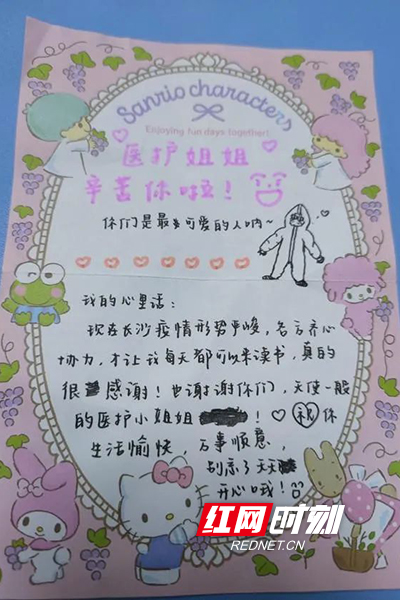 Sanrio characters
Enjoying fun days together!
医护姐姐
辛苦你啦！
你们是最最可爱的人呐~
我的心里话：
现在长沙疫情形势严峻，各方齐心
协力，才让我每天都可以来读书，真的
很感谢！也谢谢你们，天使一般
的医护小姐姐！祝你
生活愉快，万事顺意，
别忘了天天
开心哦！
红网时刻
REDNET.CN